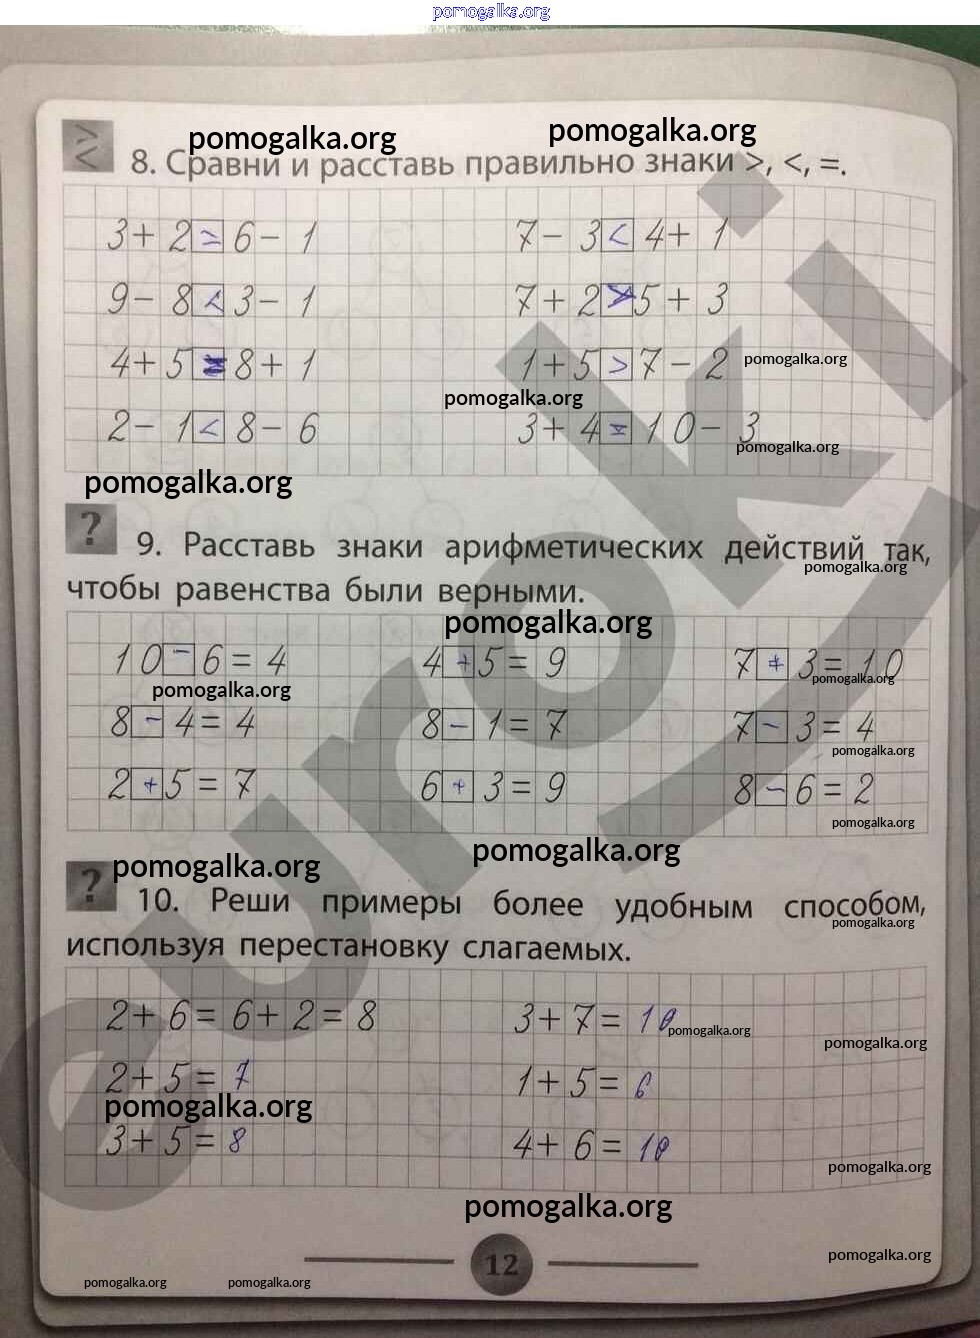 pomogalka.org
pomogalka.org pomogalka.org
8. Сравни и расставь правильно знаки >, <, =.
3 + 2 = 6 - 1 7 - 3 < 4 + 1
9 - 8 < 3 - 1 7 + 2 > 5 + 3
4 + 5 = 8 + 1 1 + 5 > 7 - 2 pomogalka.org
pomogalka.org
2 - 1 < 8 - 6 3 + 4 = 10 - 3
pomogalka.org
pomogalka.org
? 9. Расставь знаки арифметических действий так,
pomogalka.org
чтобы равенства были верными.
pomogalka.org
10 - 6 = 4 4 + 5 = 9 7 + 3 = 10
pomogalka.org pomogalka.org
8 - 4 = 4 8 - 1 = 7 7 - 3 = 4
pomogalka.org
2 + 5 = 7 6 + 3 = 9 8 - 6 = 2
pomogalka.org
pomogalka.org pomogalka.org
? 10. Реши примеры более удобным способом,
pomogalka.org
используя перестановку слагаемых.
2 + 6 = 6 + 2 = 8 3 + 7 = 10
pomogalka.org
pomogalka.org
2 + 5 = 7 1 + 5 = 6
pomogalka.org
3 + 5 = 8 4 + 6 = 10
pomogalka.org
pomogalka.org
12
pomogalka.org
pomogalka.org pomogalka.org
euroki